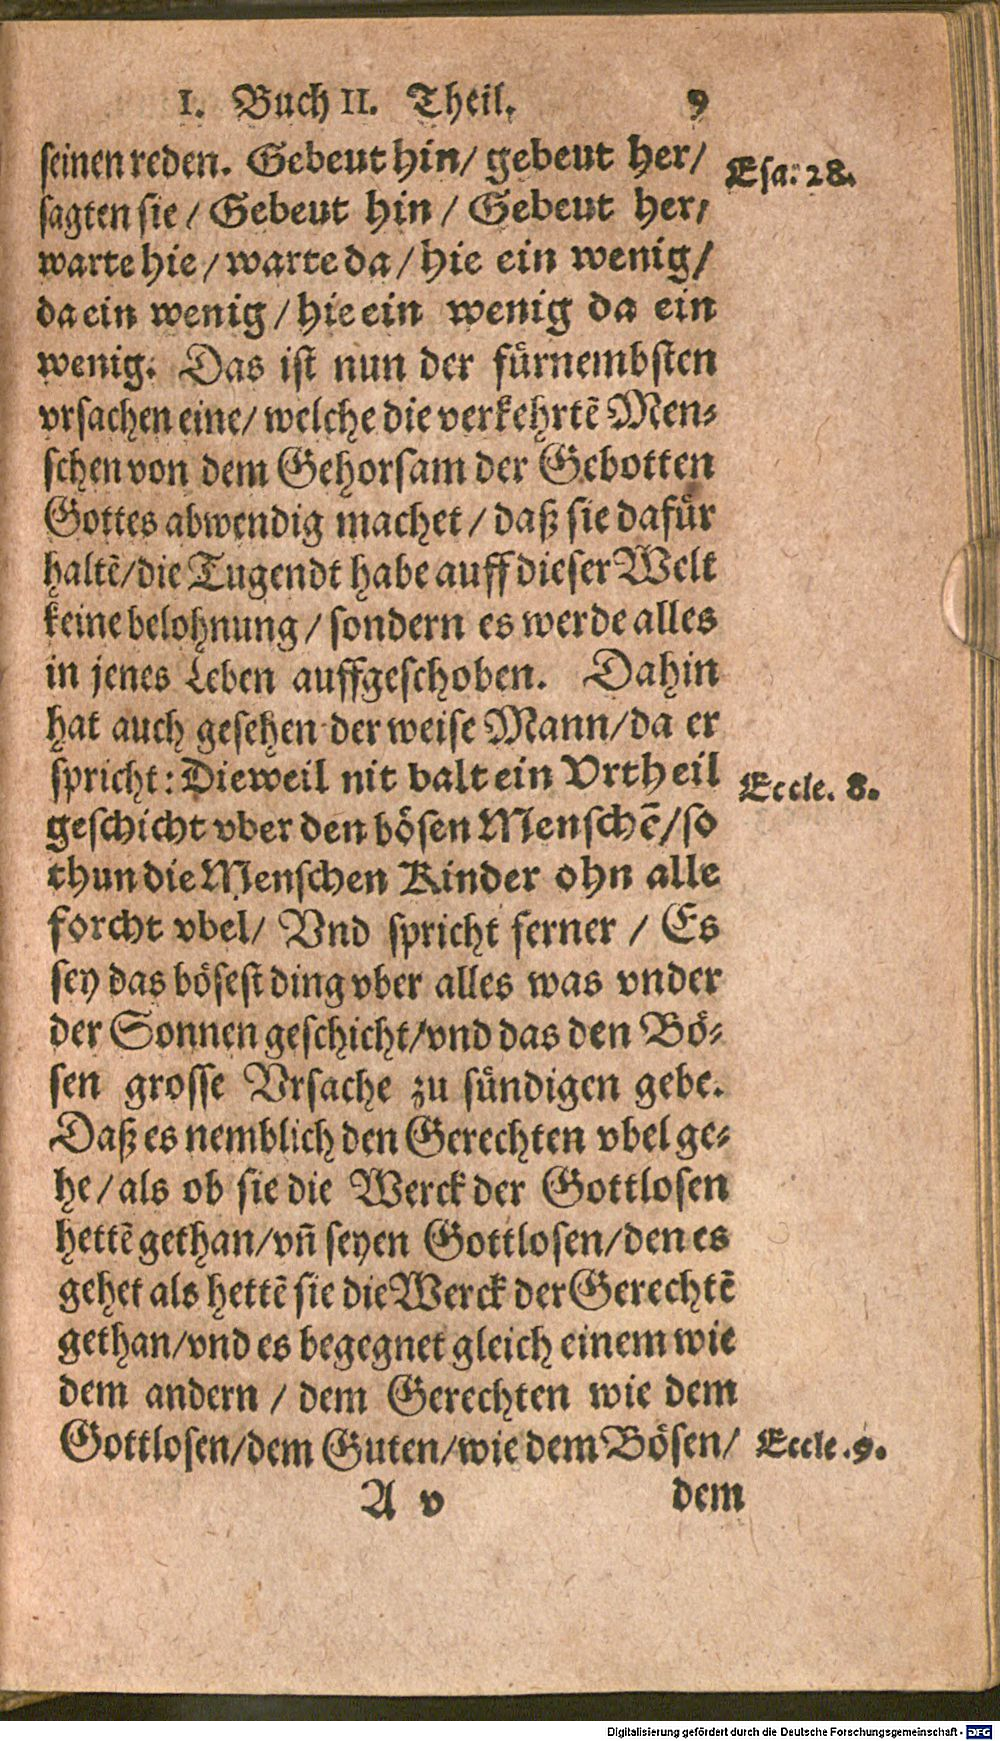 I. Buch II. Theil. 9
seinen reden. Gebeut hin/ gebeut her/ Esa: 28.
sagten sie / Gebeut hin / Gebeut her/
warte hie / warte da / hie ein wenig/
da ein wenig / hie ein wenig da ein
wenig. Das ist nun der fürnembsten
vrsachen eine/ welche die verkehrtẽ Men-
schen von dem Gehorsam der Gebotten
Gottes abwendig machet / daß sie dafür
haltẽ/die Tugendt habe auff dieser Welt
keine belohnung / sondern es werde alles
in jenes Leben auffgeschoben. Dahin
hat auch gesehen der weise Mann/da er
spricht: Dieweil nit balt ein Vrtheil Eccle. 8.
geschicht vber den bösen Menschẽ/so
thun die Menschen Kinder ohn alle
forcht vbel/ Vnd spricht ferner / Es
sey das bösest ding vber alles was vnder
der Sonnen geschicht/vnd das den Bö-
sen grosse Vrsache zu sündigen gebe.
Daß es nemblich den Gerechten vbel ge-
he/als ob sie die Werck der Gottlosen
hettẽ gethan/vñ seyen Gottlosen/den es
gehet als hettẽ sie die Werck der Gerechtẽ
gethan/vnd es begegnet gleich einem wie
dem andern / dem Gerechten wie dem
Gottlosen/dem Guten/wie dem Bösen/ Eccle. 9.
A v dem
Digitalisierung gefördert durch die Deutsche Forschungsgemeinschaft - DFG